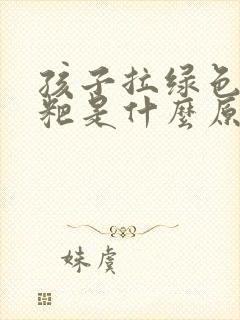 孩子拉绿色
粑是什麼原
妹虞